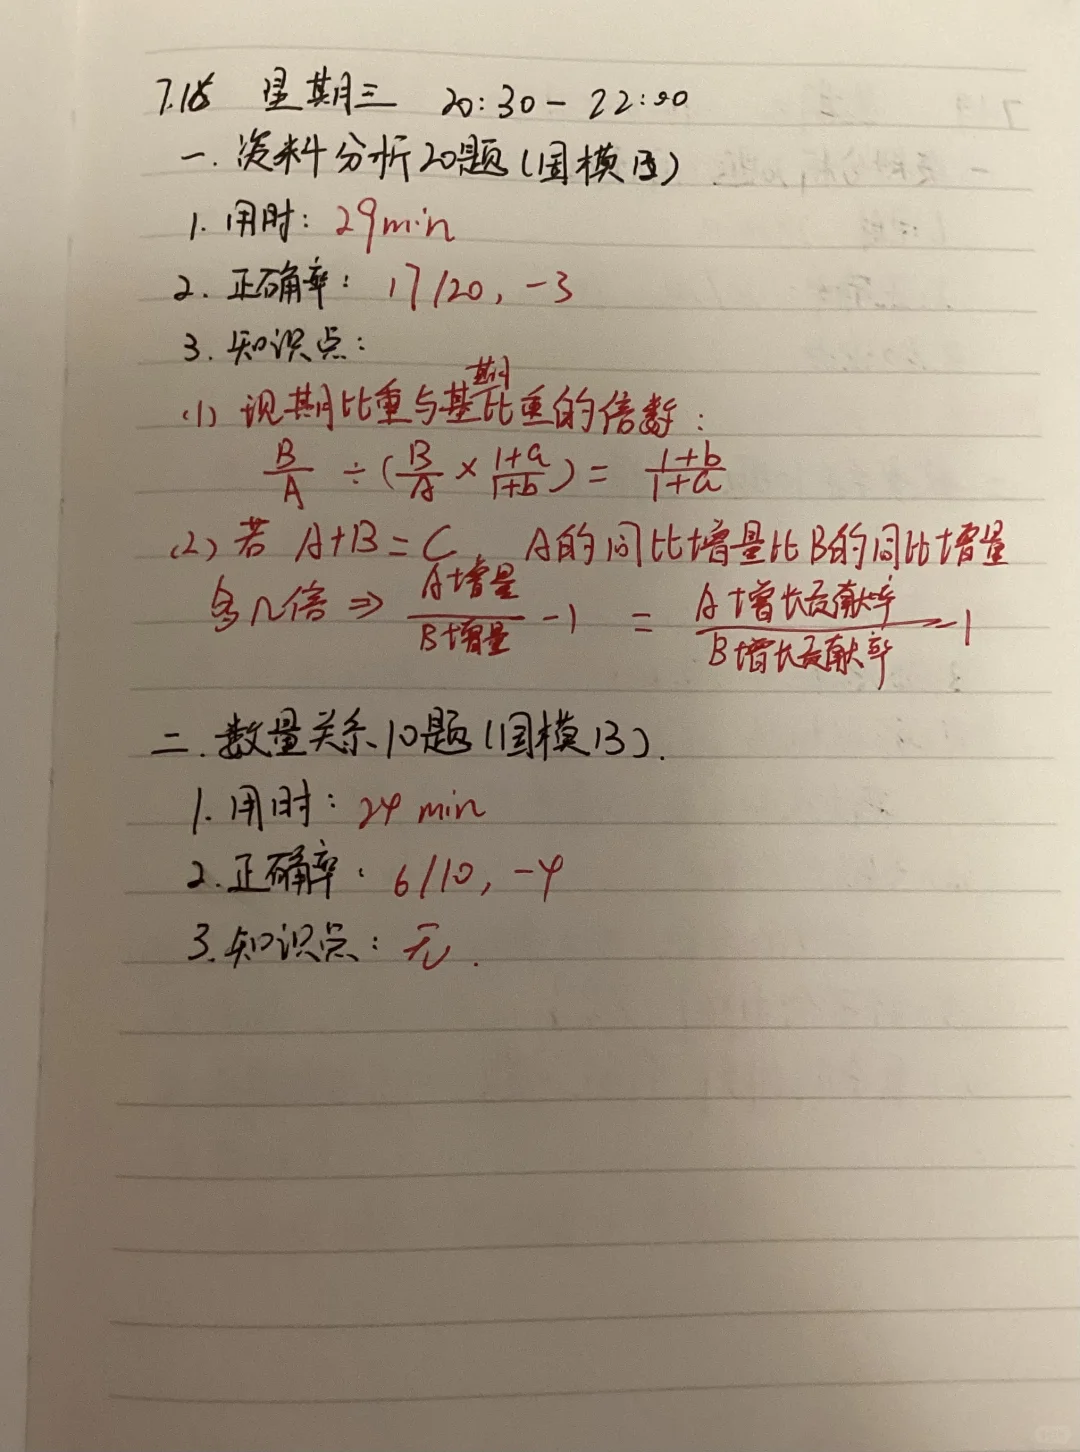 7.18 星期三 20:30-22:00
一.资料分析20题(国模13)
1.用时：29min
2.正确率：17/20，-3
3.知识点：
(1)现期比重与基期比重的倍数：
B/A ÷(B/A × 1+a/1+b)= 1+b/1+a
(2)若 A+B=C，A的同比增量比B的同比增量
多几倍⇒ A增量/B增量 -1 = A增长贡献率/B增长贡献率 -1
二.数量关系10题(国模13).
1.用时：24min
2.正确率：6/10，-4
3.知识点：无.